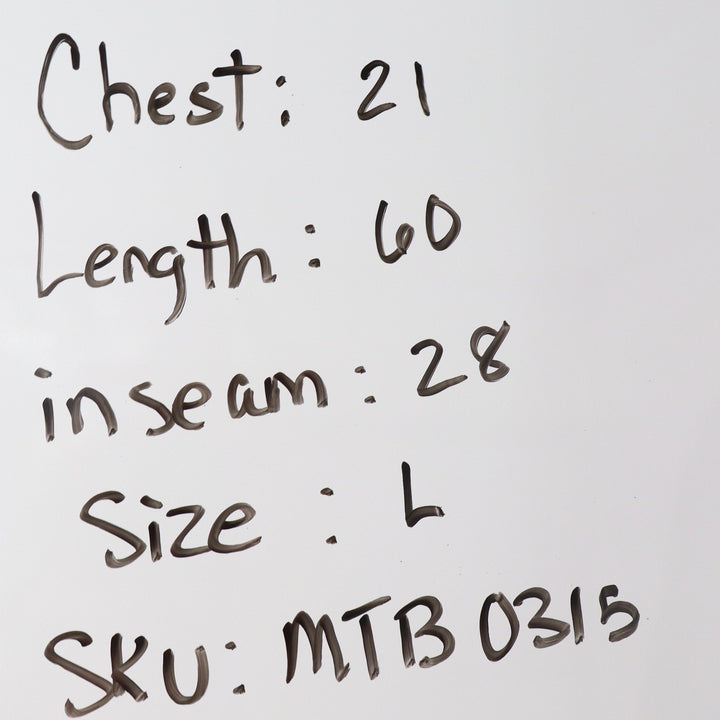 Chest: 21
Length: 60
inseam: 28
Size: L
SKU: MTB 0315